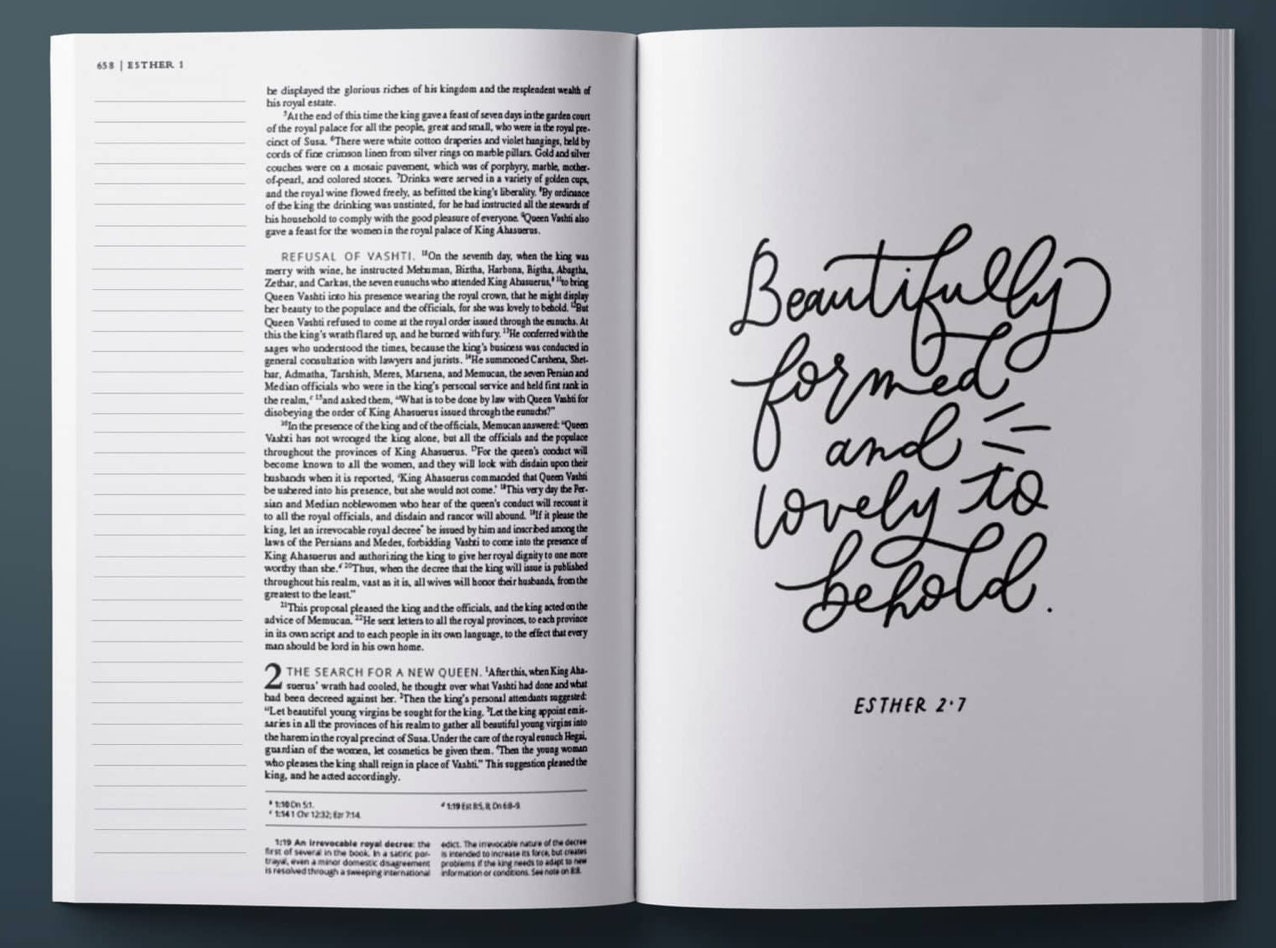 658 | ESTHER 1
he displayed the glorious riches of his kingdom and the resplendent wealth of
his royal estate.
⁵At the end of this time the king gave a feast of seven days in the garden court
of the royal palace for all the people, great and small, who were in the royal pre-
cinct of Susa. ⁶There were white cotton draperies and violet hangings, held by
cords of fine crimson linen from silver rings on marble pillars. Gold and silver
couches were on a mosaic pavement, which was of porphyry, marble, mother-
of-pearl, and colored stones. ⁷Drinks were served in a variety of golden cups,
and the royal wine flowed freely, as befitted the king's liberality. ⁸By ordinance
of the king the drinking was unstinted, for he had instructed all the stewards of
his household to comply with the good pleasure of everyone. ⁹Queen Vashti also
gave a feast for the women in the royal palace of King Ahasuerus.
REFUSAL OF VASHTI. ¹⁰On the seventh day, when the king was
merry with wine, he instructed Mehuman, Biztha, Harbona, Bigtha, Abagtha,
Zethar, and Carkas, the seven eunuchs who attended King Ahasuerus, ¹¹to bring
Queen Vashti into his presence wearing the royal crown, that he might display
her beauty to the populace and the officials, for she was lovely to behold. ¹²But
Queen Vashti refused to come at the royal order issued through the eunuchs. At
this the king's wrath flared up, and he burned with fury. ¹³He conferred with the
sages who understood the times, because the king's business was conducted in
general consultation with lawyers and jurists. ¹⁴He summoned Carshena, Shet-
har, Admatha, Tarshish, Meres, Marsena, and Memucan, the seven Persian and
Median officials who were in the king's personal service and held first rank in
the realm,ᶜ ¹⁵and asked them, “What is to be done by law with Queen Vashti for
disobeying the order of King Ahasuerus issued through the eunuchs?”
¹⁶In the presence of the king and of the officials, Memucan answered: “Queen
Vashti has not wronged the king alone, but all the officials and the populace
throughout the provinces of King Ahasuerus. ¹⁷For the queen's conduct will
become known to all the women, and they will look with disdain upon their
husbands when it is reported, ‘King Ahasuerus commanded that Queen Vashti
be ushered into his presence, but she would not come.’ ¹⁸This very day the Per-
sian and Median noblewomen who hear of the queen's conduct will recount it
to all the royal officials, and disdain and rancor will abound. ¹⁹If it please the
king, let an irrevocable royal decree* be issued by him and inscribed among the
laws of the Persians and Medes, forbidding Vashti to come into the presence of
King Ahasuerus and authorizing the king to give her royal dignity to one more
worthy than she.ᵈ ²⁰Thus, when the decree that the king will issue is published
throughout his realm, vast as it is, all wives will honor their husbands, from the
greatest to the least.”
²¹This proposal pleased the king and the officials, and the king acted on the
advice of Memucan. ²²He sent letters to all the royal provinces, to each province
in its own script and to each people in its own language, to the effect that every
man should be lord in his own home.
2 THE SEARCH FOR A NEW QUEEN. ¹After this, when King Aha-
suerus' wrath had cooled, he thought over what Vashti had done and what
had been decreed against her. ²Then the king's personal attendants suggested:
“Let beautiful young virgins be sought for the king. ³Let the king appoint emis-
saries in all the provinces of his realm to gather all beautiful young virgins into
the harem in the royal precinct of Susa. Under the care of the royal eunuch Hegai,
guardian of the women, let cosmetics be given them. ⁴Then the young woman
who pleases the king shall reign in place of Vashti.” This suggestion pleased the
king, and he acted accordingly.
1:10 Dn 5:1.
ᶜ 1:14 1 Chr 12:32; Ezr 7:14.
ᵈ 1:19 Est 8:5, 8; Dn 6:8-9.
1:19 An irrevocable royal decree: the
first of several in the book. In a satiric por-
trayal, even a minor domestic disagreement
is resolved through a sweeping international
edict. The irrevocable nature of the decree
is intended to increase its force, but creates
problems if the king needs to adapt to new
information or conditions. See note on 8:8.
Beautifully
formed
and
lovely to
behold.
ESTHER 2·7